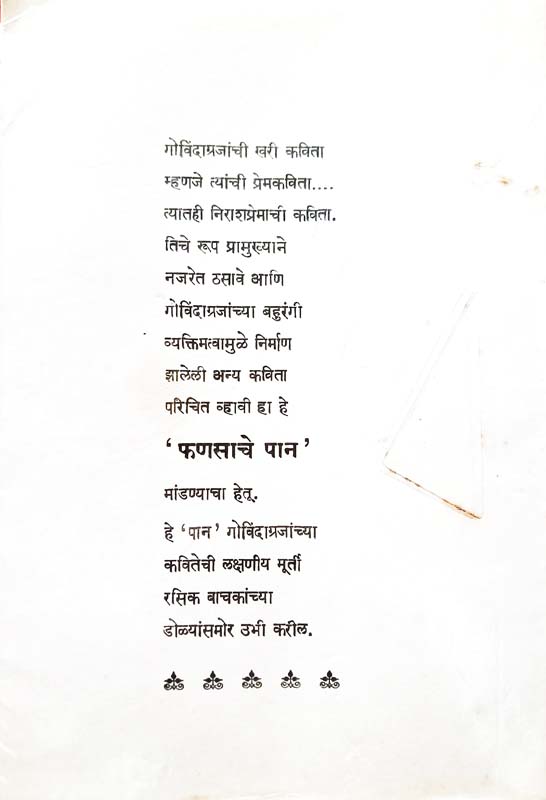 गोविंदाग्रजांची खरी कविता
म्हणजे त्यांची प्रेमकविता....
त्यातही निराशप्रेमाची कविता.
तिचे रूप प्रामुख्याने
नजरेत ठसावे आणि
गोविंदाग्रजांच्या बहुरंगी
व्यक्तिमत्वामुळे निर्माण
झालेली अन्य कविता
परिचित व्हावी हा हे
‘फणसाचे पान’
मांडण्याचा हेतू.
हे ‘पान’ गोविंदाग्रजांच्या
कवितेची लक्षणीय मूर्ती
रसिक बाचकांच्या
डोळ्यांसमोर उभी करील.